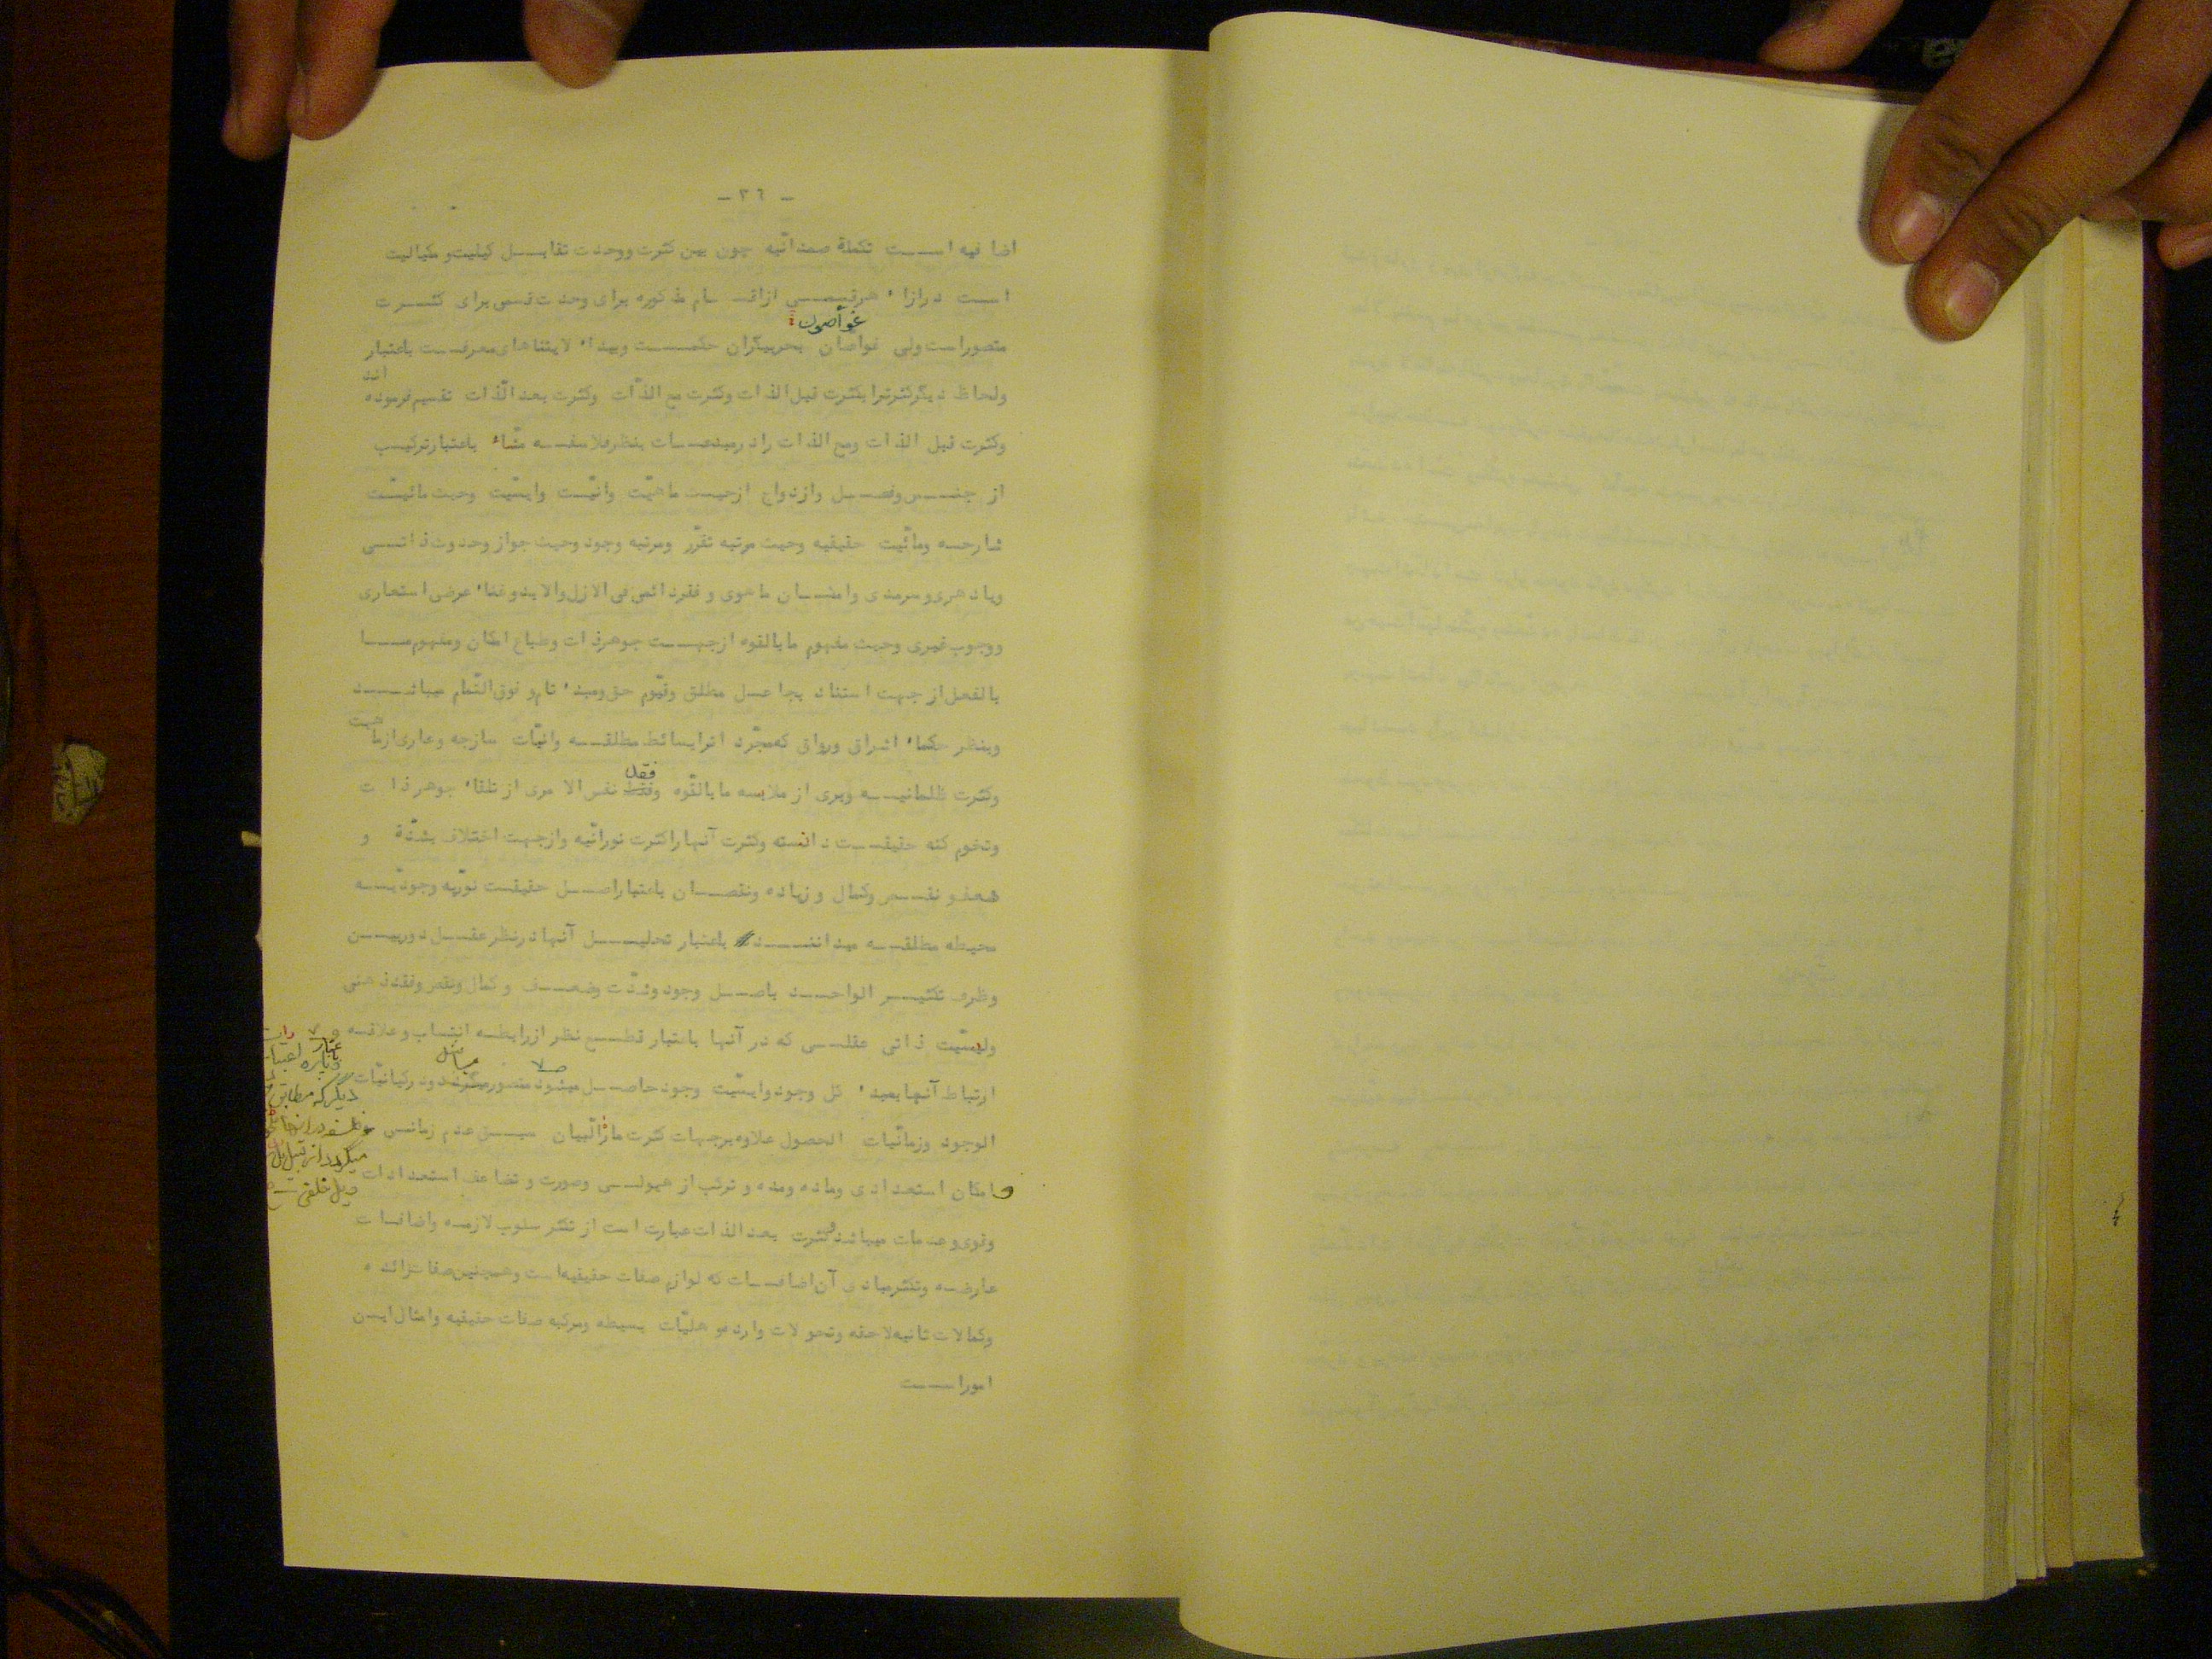 - ۲٦ -
اضافیه است تکملة صمدانّیه چون بین کثرت ووحدت تقابل کیلیت و مکیالیت
است درازا' هرقسمی ازاقسام مذکوره برای وحدت قسمی برای کثرت
غوّاصون
متصوراست ولی غواصان بحربیکران حکمت وبیدا' لایتناهای معرفت باعتبار
اند
ولحاظ دیگرکثرترا بکثرت قبل الذات وکثرت مع الذّات وکثرت بعد الّذات تقسیم فرموده
وکثرت قبل الذات ومع الذات را درمبدعات بنظرفلاسفه مشّاء باعتبارترکیب
از جنس وفصل وازدواج ازحیث ماهیّت وانیّت وایسّیت وحیث مائیّت
شارحه ومائّیت حقیقیه وحیث مرتبه تقرّر ومرتبه وجود وحیث جواز وحدوث ذاتی
ویا دهری و سرمدی وامکان ماهوی و فقردائمی فی الازل والابد وغنا' عرضی استعاری
ووجوب غیری وحیث مفهوم مابالقوه ازجهت جوهرذات وطباع امکان ومفهوم ما
بالفعل از جهت استناد بجاعل مطلق وقیّوم حق ومبد' تام و فوق التّمام میباشد
وبنظر حکما' اشراق ورواق که مجرّد انرا بسائط مطلقه وانیّات سازجه وعاری از ماهیت
فقد
وکثرت ظلمانیه وبری از ملابسه مابالقوّه وفقط نفس الامری از تلقا' جوهر ذات
وتخوم کنه حقیقت دانسته وکثرت آنهاراکثرت نورانّیه وازجهت اختلاف بشدّة و
ضعف و نقص وکمال و زیاده ونقصان باعتباراصل حقیقت نوّریه وجودّیه
محیطه مطلقه میدانند باعتبار تحلیل آنها درنظر عقل دوربین
وظرف تکثیر الواحد باصل وجود وشدّت وضعف و کمال ونقص وفقدذهنی
ولیسّیت ذاتی عقلی که در آنها باعتبار قطع نظر ازرابطه انتساب وعلاقه
ارتباط آنها بمبد' کل وجود وایسّیت وجود حاصل میشود متصور میگردد ودرکیانیّات
الوجود وزمانّیات الحصول علاوه برجهات کثرت مارّالّبیان سبق عدم زمانی
وامکان استعدادی وماده ومده و ترکب از هیولی وصورت و تضاعف استعدادات
وقوی وعدمات میباشد وکثرت بعد الذات عبارت است از تکثر سلوب لازمه واضافات
عارضه وتکثرمبادی آن اضافات که لوازم صفات حقیقیه است وهمچنین صفات زائده
وکمالات ثانیه لاحقه وتحولات وارده و هلیّات بسیطه ومرکبه صفات حقیقیه وامثال این
اموراست
دیگر که مطابق